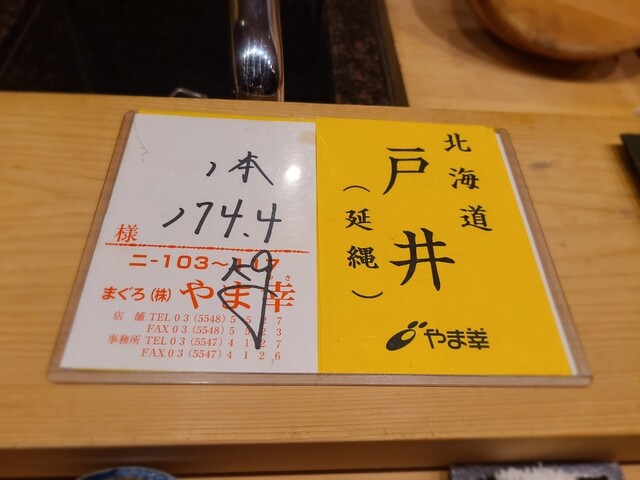 1本
174.4
様
ニ-103~
まぐろ(株) やま幸
店 舗 TEL 03 (5548) 5 5 2 7
FAX 03 (5548) 5 5 2 3
事務所 TEL 03 (5547) 4 1 2 7
FAX 03 (5547) 4 1 2 6
北海道
戸井
(延縄)
やま幸